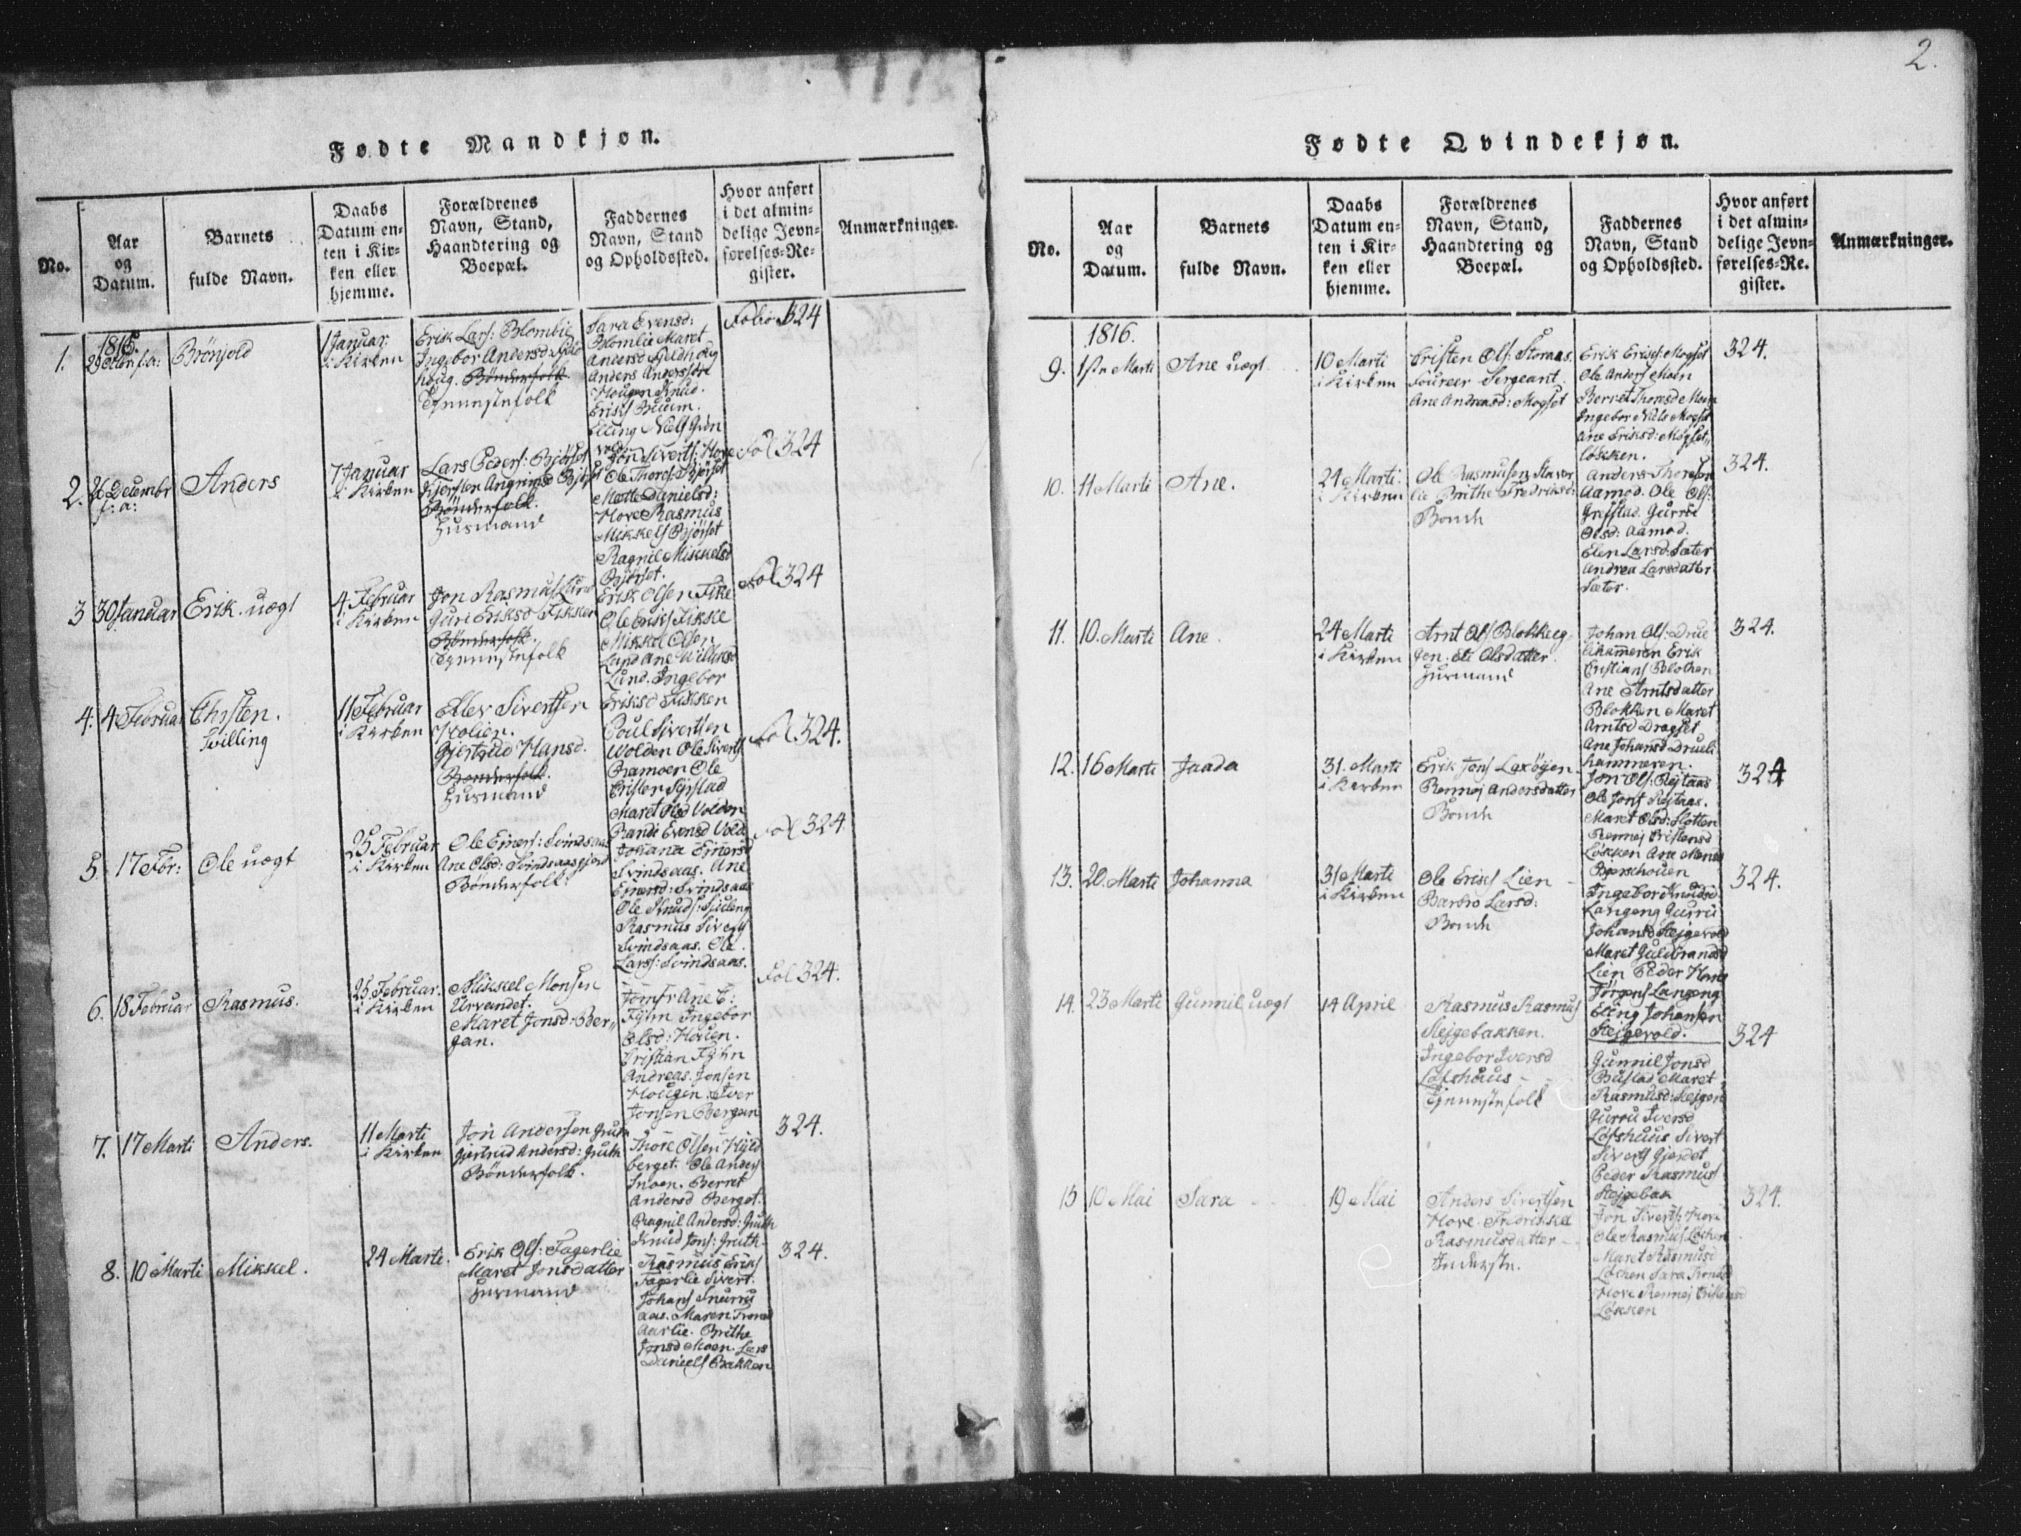 2.
Fødte Mandkjøn.
No.
Aar
og
Datum.
Barnets
fulde Navn.
Daabs
Datum en-
ten i Kir-
ken eller
hjemme.
Forældrenes
Navn, Stand,
Haandtering og
Boepæl.
Faddernes
Navn, Stand
og Opholdssted.
Hvor anført
i det almin-
delige Jevn-
førelses-Re-
gister.
Anmærkninger.
1.
Brønjold
1 Januar
i Kirken
Erik Lars: Blomlie
Ingebor Andersd:
houg. Bønderfolk
Tjenistefolk
Sara Evensd:
Blomlie Maret
Anders Anders
Hougen Knud
Elling Niels
324
2.
26 Decembr
f: a:
Anders
7 Januar
i Kirken
Lars Peders: Bjørset
Bønderfolk.
Husmand
Jon Siverts: Hove
Ole Thores Bjørset
Marte Danielsd:
Hove Rasmus
Mikkels Bjørset
Ragnil Mikkelsd
Bjørset.
Fol 324
3
30 Januar
Erik. uægt
4. Februar
i Kirken
Jon Rasmus Lund
Guri Eriksd Fikken
Bønderfolk.
Tjenistefolk
Erik Olsen Fike
Ole Eriks Fikke
Mikkel Olsen
Lund Ane Willumsd
Lund. Ingebor
Eriksd Fikken
Fol 324
4.
4 Februa
Chrsten.
Tvilling
11 Februar
i Kirken
Elev Sivertsen
Holien.
Gjertrud Hansd.
Bønderfolk.
Husmand
Poul Sivertsen
Wolden Ole Siverts
Bramoen Ole
Cristen
Maret Olsd Volden
Randi Evensd Vold
Fol 324.
5.
17 Febr:
Ole uægt
25 Februar
i Kirken
Ole Einers: Svindsaas
Ane Olsd: Svindsaas
Bønderfolk.
Johana Einersd
Svindsaas. Ane
Einersd: Svindsaas
Ole Knuds:
Rasmus Siverts
Svindsaas. Ole
Larss: Svindsaas.
Fol 324
6.
18 Februar
Rasmus.
25 Februar.
i Kirken
Mikkel Monsen
Urvandet.
Maret Jonsd: Ber„
gan.
Jomfr Ane E:
Ingebor
Olsd: Houen.
Cristian
Andreas. Jonsen
Hougen. Iver
Jonsen Bergan
Fol 324.
7.
17 Marti
Anders.
11 Marti
i Kirken
Jon Andersen Gruth
Gjertrud Andersd: Gruth
Bønderfolk.
Thore Olsen Hyld
berget. Ole Anders
Snoen. Berret
Andersd Berget.
Ragnil Andersd: Gruth
Knud Jons: Gruth
324.
8.
10 Marti
Mikkel.
24 Marti.
Erik Ols: Fagerlie
Maret Jonsdatter
Husmand
Rasmus Eriks
Fagerlie Sivert
Johans Snurru
aas. Maren Trond
Aarlie. Brithe
Jonsd Moen. Lars
Daniels Bakken
324.
Fødte Qvindekjøn.
No.
Aar
og
Datum.
Barnets
fulde Navn.
Daabs
Datum en-
ten i Kir-
ken eller
hjemme.
Forældrenes
Navn, Stand,
Haandtering og
Boepæl.
Faddernes
Navn, Stand
og Opholdssted.
Hvor anført
i det almin-
delige Jevn-
førelses-Re-
gister.
Anmærkninger.
1816.
9.
1ste Marti
Ane uægt
10 Marti
i Kirken
Cristen Ols: Storaas.
Foureer Sergeant.
Ane Andreasd: Mogset
Erik Erics: Mogset
Ole Anders Moen
Berret Thoresd Moen
Ingebor Niels Mogset
Ane Eriksd: Mogset„
Løkken.
324.
10.
11 Marti
Ane.
24 Marti.
i Kirken
Ole Rasmusen Stavər
lie Brithe Fredriksd:
Bonde
Anders Thoresen
Aamod. Ole Ols:
Grefstad. Gurrue
Olsd: Aamod.
Elen Larsd: Sæter
Andrea Larsdatter
Sæter.
324.
11.
10. Marti
Ane.
24 Marti
i Kirken
Arnt Ols Blokkeg
Olsdatter.
Husmand
Johan Ols: Drue
hammeren Erik
Cristians Blokken
Ane Arntsdatter
Blokken Maret
Arntsd Dragset
Ane Johansd Drueli
hammeren.
324.
12.
16 Marti
Jaada
31. Marti
i Kirken
Erik Jons Laxøyen
Rennej Andersdatter
Bonde
Jon Ols: Rejtaas
Ole Jons Rejtaas.
Maret Olsd: Slotten
Rennej Cristensd
Løkken Ane
324
13.
20. Marti
Johanna
31 Marti
i Kirken
Ole Erics Lien
Barbro Larsd:
Bonde
Ingebor Knudsd
Langeng Gurru
Johansd Stejgevold
Maret Guldbransd
Lien Peder Hans
Jørgens Langeng
Elling Johansen
Stejgevold.
324.
14.
23 Marti
Gunnil uægt
14 April
Rasmus Rasmus
Stejgebakken.
Ingebor Iversd
Lofshuus
Tjenistefolk
Gunnil Jonsd
Bustad Maret
Rasmusd: Stejgen
Gurru Iversd
Lofshuus Sivert
Siverts Gjerdet
Peder Rasmus
Stejgebak
324
15
10 Mai
Sara
19 Mai
Anders Sivertsen
Hove. Fredrikke
Rasmusdatter
Inderste.
Jon Siverts: Hove
Ole Rasmus: Løkken
Maret Rasmusd
Løkken Sara Trondsd
Hove Rennej Cristensd
Løkken
324.